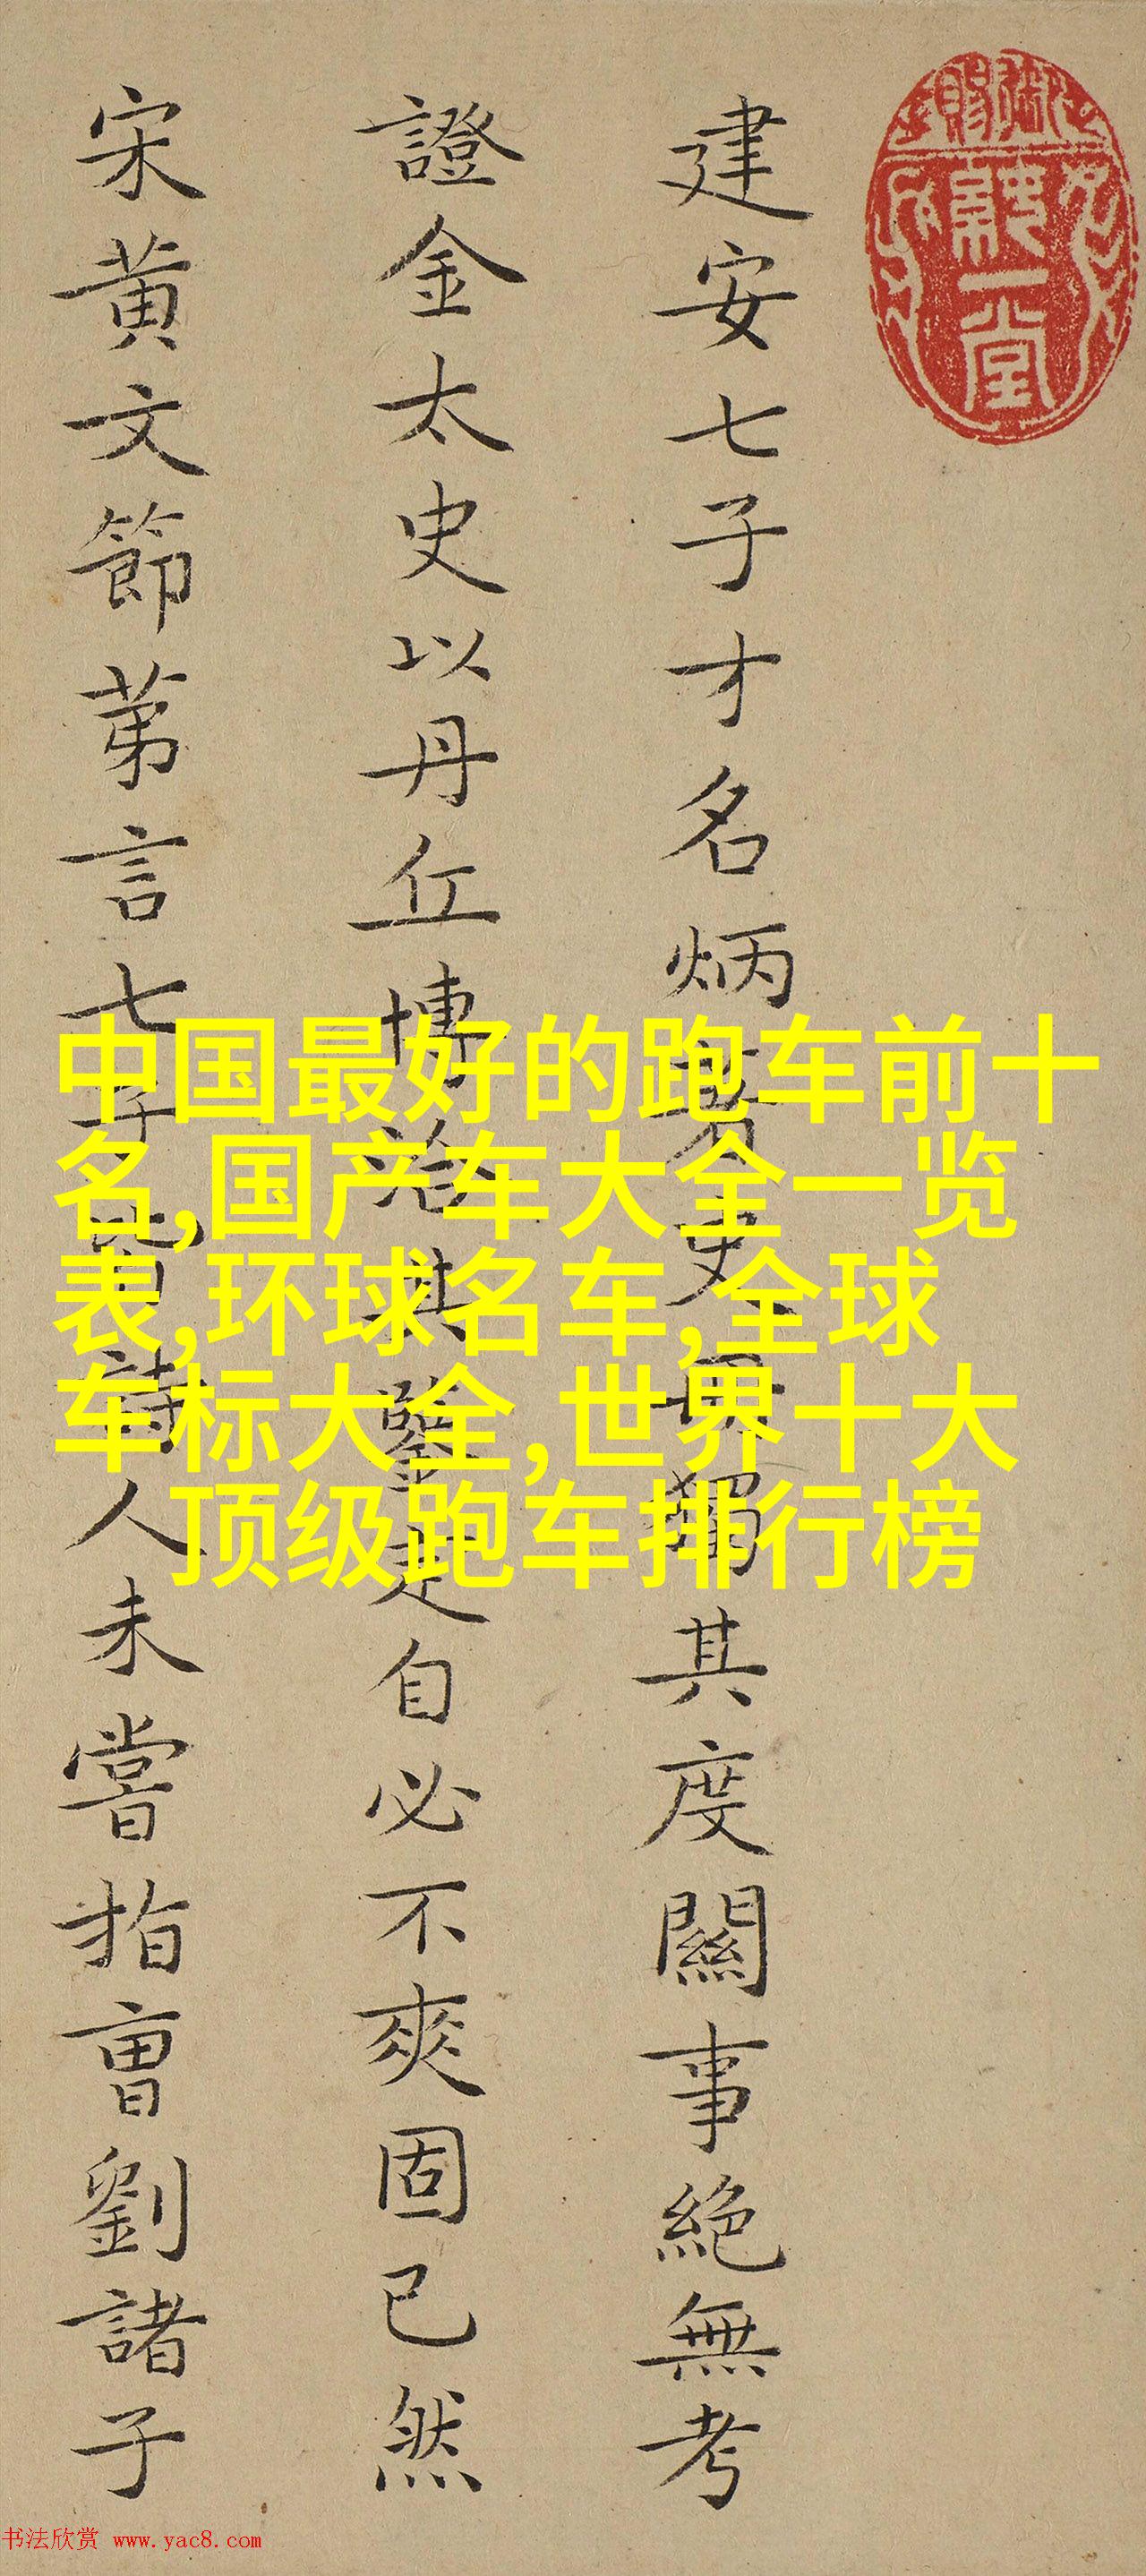 建安七子才名炳著史獨其度關事絕無考
證金太史以丹丘博洽其鑒定自必不爽固已然
宋黄文節苐言七子皆詩人未嘗指曹劉諸子
中国最好的跑车前十
名,国产车大全一览
表,环球名车,全球
车标大全,世界十大
顶级跑车排行榜
书法欣赏 www.yac8.com